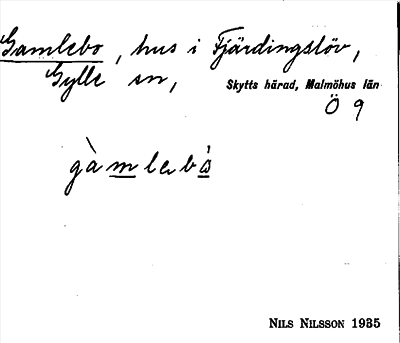 Gamlebo, hus i Fjärdingslöv,
Gylle sn, Skytts härad, Malmöhus län
Ö 9
gàmlebò
NILS NILSSON 1935